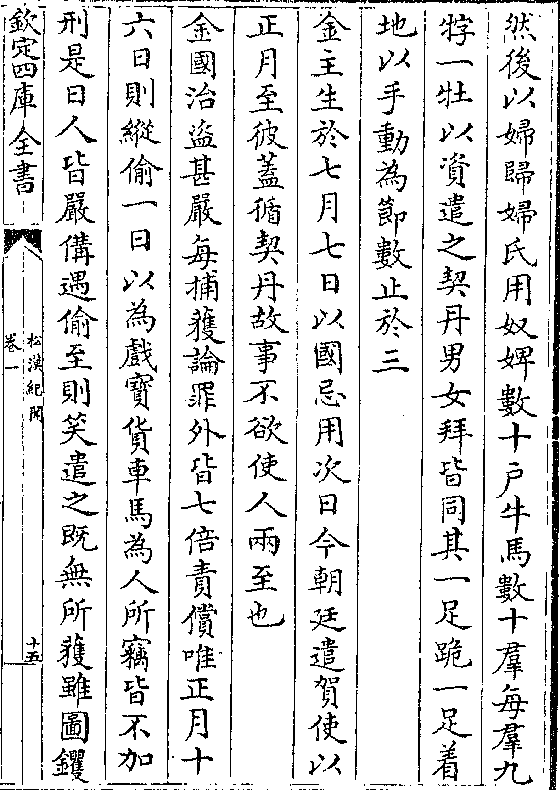 然後以婦歸婦氏用奴婢數十戶牛馬數十羣每羣九
牸一牡以資遣之契丹男女拜皆同其一足跪一足着
地以手動為節數止於三
金主生於七月七日以國忌用次日今朝廷遣賀使以
正月至彼蓋循契丹故事不欲使人兩至也
金國治盜甚嚴每捕獲論罪外皆七倍責償唯正月十
六日則縱偷一日以為戲寶貨車馬為人所竊皆不加
刑是日人皆嚴備遇偷至則笑遣之既無所獲雖圖钁
欽定四庫全書
松漠紀聞
卷一
十五